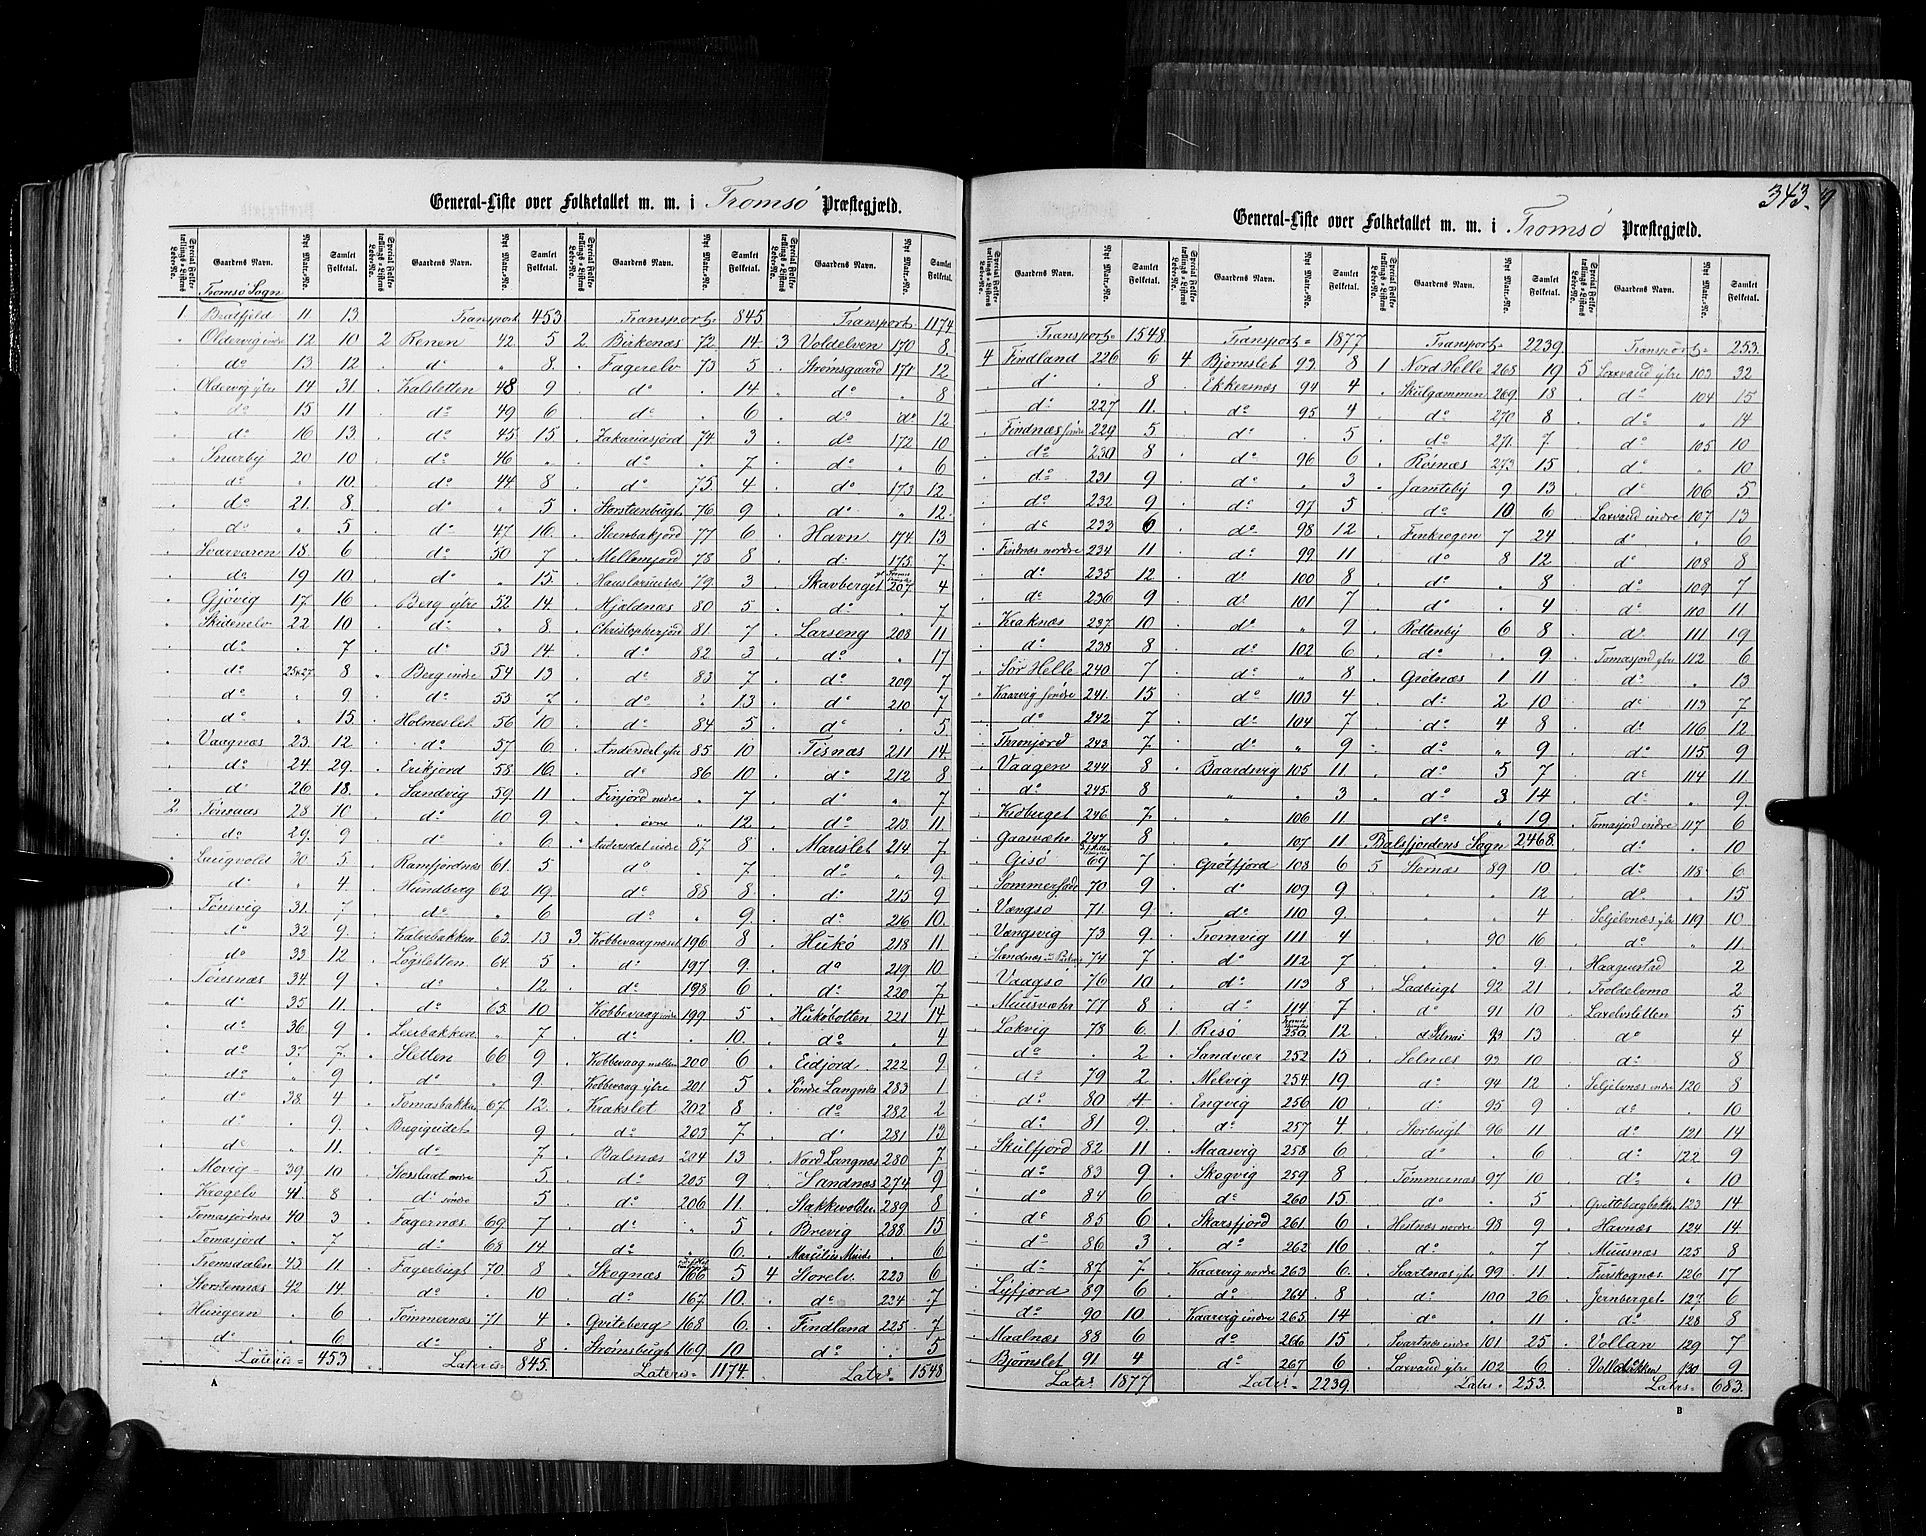 General-Liste over Folketallet m. m. i Tromsø Præstegjæld.
Special Folketællings-Listens Løbe-No. Gaardens Navn. Nyt Matr.-No. Samlet Folketal.
Tromsø Sogn
1 Bratfjeld 11 13
" Oldervig indre 12 10
" do 13 12
" Oldervig ytre 14 31
" do 15 11
" do 16 13
" Snarby 20 10
" do " 10
" do 21 8
" do " 5
" Svarvaren 18 6
" do 19 10
" Gjøvig 17 16
" Skidenelv 22 10
" do " 7
" do 25 27 8
" do " 9
" do " 15
" Vaagnæs 23 12
" do 24 29
" do 26 18
2 Tønsaas 28 10
" do 29 9
" Laugvold 30 5
" do " 4
" Tønsvig 31 7
" do 32 9
" do 33 12
" Tønsnæs 34 9
" do 35 11
" do 36 9
" do 37 7
" do " 9
" do 38 4
" do " 9
" do " 11
" Movig 39 10
" Krogelv 41 8
" Tomasjordnæs 40 3
" Tomasjord " 7
" Tromsdalen 43 11
" Storstennæs 42 14
" Hungern " 6
" do " 6
Lateris = 453
Transport 453
2 Renen 42 5
" do " 8
" Kalsletten 48 9
" do 49 6
" do 45 15
" do 46 "
" do 44 8
" do " 5
" do 47 16
" do 50 7
" do " 15
" Berg ytre 52 14
" do " 8
" do 53 14
" Berg indre 54 13
" do 55 7
" Holmeslet 56 10
" do 57 6
" Erikjord 58 16
" Sandvig 59 11
" do 60 9
" do " 6
" Ramfjordnæs 61 5
" Hundberg 62 19
" do " 6
" Kalvebakken 63 13
" Løgsletten 64 5
" do " 12
" do 65 10
" Leerbakken " 7
" Sletten 66 9
" do " 9
" Tomasbakken 67 12
" Bregigeidet 9
" do 7
" Storslaat nordre 5
" do søndre 5
" Fagernæs 69 7
" do 68 14
" Fagerbugt 70 8
" do " 10
" Tömmernæs 71 4
" do " 8
Lateris = 845
Transport 845
2 Birkenæs 72 14
" Fagerelv 73 5
" do " 14
" do " 6
" Zakariasjord 74 3
" do " 7
" do 75 4
" Storsteenbugt 76 9
" Steenbakjord 77 6
" Mellemjord 78 8
" 79 3
" Hjeldnæs 80 5
" Christopherjord 81 7
" do 82 3
" do 83 7
" do " 13
" do 84 5
" Andersdal ytre 85 10
" do 86 10
" Finjord nedre " 7
" " øvre " 12
" Andersdal indre 87 8
" do " 7
" do 88 8
" do " 9
3 Kobbevaagnæset 196 8
" do 197 9
" do 198 6
" Kobbevaag indre 199 5
" do " 10
" Kobbevaag mellem 200 6
" Kobbevaag ytre 201 5
" Krakslet 202 8
" do 203 7
" Balsnæs 204 13
" do 205 9
" do 206 11
" do " 5
" do " 6
" Skognæs 166 5
" do 167 10
" Gviteberg 168 6
" Strømsbugt 169 10
Lateris = 1174
Transport 1174
3 Voldelven 170 8
" Strømsgaard 171 12
" do " 8
" do do 12
" do 172 10
" do " 6
" do 173 12
" do " 12
" Havn 174 13
" do 175 7
" Skavberget 207 4
" do " 7
" Larseng 208 11
" do " 17
" do 209 7
" do 210 7
" do 5
" Tisnæs 211 14
" do 212 8
" do " 7
" do 213 11
" Marislet 214 7
" do " 9
" do 215 9
" do 216 10
" Hukø 218 11
" do 219 10
" do 220 7
" Hukøbotten 221 14
" do " 4
" Eidjord 222 9
" Søndre Langnæs 283 1
" do 282 2
" do 281 13
" Nord Langnæs 280 7
" Sandnæs 274 9
" Stakkevolden 289 8
" Brevig 288 15
" Marcilius Minde " 6
4 Storelv 223 6
" do 224 7
" Findland 225 7
" do " 5
Latrs = 1548

343. 9
General-Liste over Folketallet m. m. i Tromsø Præstegjæld.
Special Folketællings-Listens Løbe-No. Gaardens Navn. Nyt Matr.-No. Samlet Folketal.
Transport 1548
4 Findland 226 6
" do " 8
" do 227 11
" Findnæs søndre 229 5
" do 230 8
" do 231 9
" do 232 9
" do 233 6
" Findnæs nordre 234 11
" do 235 12
" do 236 9
" Kraknæs 237 10
" do 238 8
" Sør Helle 240 7
" Kaarvig søndre 241 15
" do 242 7
" Thronjord 243 7
" Vaagen 244 8
" do 245 8
" Kidberget 246 7
" Gaasvatn 247 8
" Gisø 69 7
" Sommerfade 70 9
" Vængsø 71 9
" Vængsvig 73 9
" Sandnæs 74 7
" Vaagsø 76 10
" Muusvæhr 77 8
" Lokvig 78 6
" do " 2
" do 79 2
" do 80 4
" do 81 9
" Skulfjord 82 11
" do 83 9
" do 84 6
" do 85 6
" do 86 3
" do 87 7
" Lyfjord 89 6
" do 90 10
" Maalnæs 88 6
" Bjørnslet 91 4
Latrs 1877
Transport 1877
4 Bjørnslet 93 8
" Ekkernæs 94 4
" do 95 4
" do " 5
" do 96 6
" do " 3
" do 97 5
" do 98 12
" do 99 11
" do 100 8
" do 101 7
" do " 9
" do 102 6
" do " 8
" do 103 4
" do 104 7
" do " 9
" Baardsvig 105 11
" " " 3
" " 106 11
" " 107 11
" Grøtfjord 108 6
" do 109 9
" do 110 9
" Tromvig 111 4
" do 112 7
" do 113 8
" do 114 7
1 Risø 250 12
" Sandvær 252 15
" Melvig 254 19
" Engvig 256 10
" do 257 4
" Maasvig 258 6
" Skogvig 259 8
" do 260 15
" Skarsfjord 261 6
" do 262 16
" Kaarvig nordre 263 6
" do 264 8
" Kaarvig indre 265 14
" do 266 15
" do 267 6
Latrs = 2239
Transport 2239
1 Nord Helle 268 19
" Skulgammen 269 18
" do 270 8
" do 271 7
" Røsnæs 273 15
" Jamteby 9 13
" do 10 6
" Finkrogen 7 24
" do 8 12
" do " 8
" do " 4
" Rottenby 6 8
" do " 9
" Grønæs 1 11
" do 2 10
" do 4 8
" do " 9
" do 5 7
" do 3 14
" do " 19
Balsfjordens Sogn 2468
5 Stornæs 89 10
" " " 12
" " " 4
" " 90 16
" " " 9
" Ladbugt 92 21
" do 91 10
" d Selnæs 93 13
" Selnæs 93 10
" do 94 12
" do 95 9
" Storbugt 96 11
" do " 6
" Tömmernæs 97 10
" do " 5
" Hestnæs nordre 98 9
" do " 7
" Svartnæs ytre 99 11
" do 100 26
" do " 11
" Svartnæs indre 101 25
" Laxvand ytre 102 6
Latrs = 253
Transport 253
5 Laxvand ytre 103 32
" do 104 15
" do " 14
" do 105 10
" do " 10
" do 106 5
" Laxvand indre 107 13
" do " 6
" do 108 8
" do 109 7
" do 110 11
" do 111 19
" Tomasjord ytre 112 6
" do " 13
" do 113 7
" do 116 12
" do 115 9
" do 114 11
" do " 9
" Tomasjord indre 117 6
" do " 10
" do 118 6
" do " 15
" Seljelvnæs ytre 119 10
" do " 11
" Haagenstad 2
" Troldelvmo 2
" Laxelvsletten 5
" do 4
" do 8
" Seljelvnæs indre 120 8
" do " 10
" do 121 14
" do 122 9
" do " 10
" Gvitebergbakken 123 14
" Havnæs 124 14
" Muusnæs 125 8
" Furskognæs 126 17
" Jernberget 127 6
" do 128 8
" Vollan 129 7
" Voldbakken 130 9
Latrs = 683
A
B